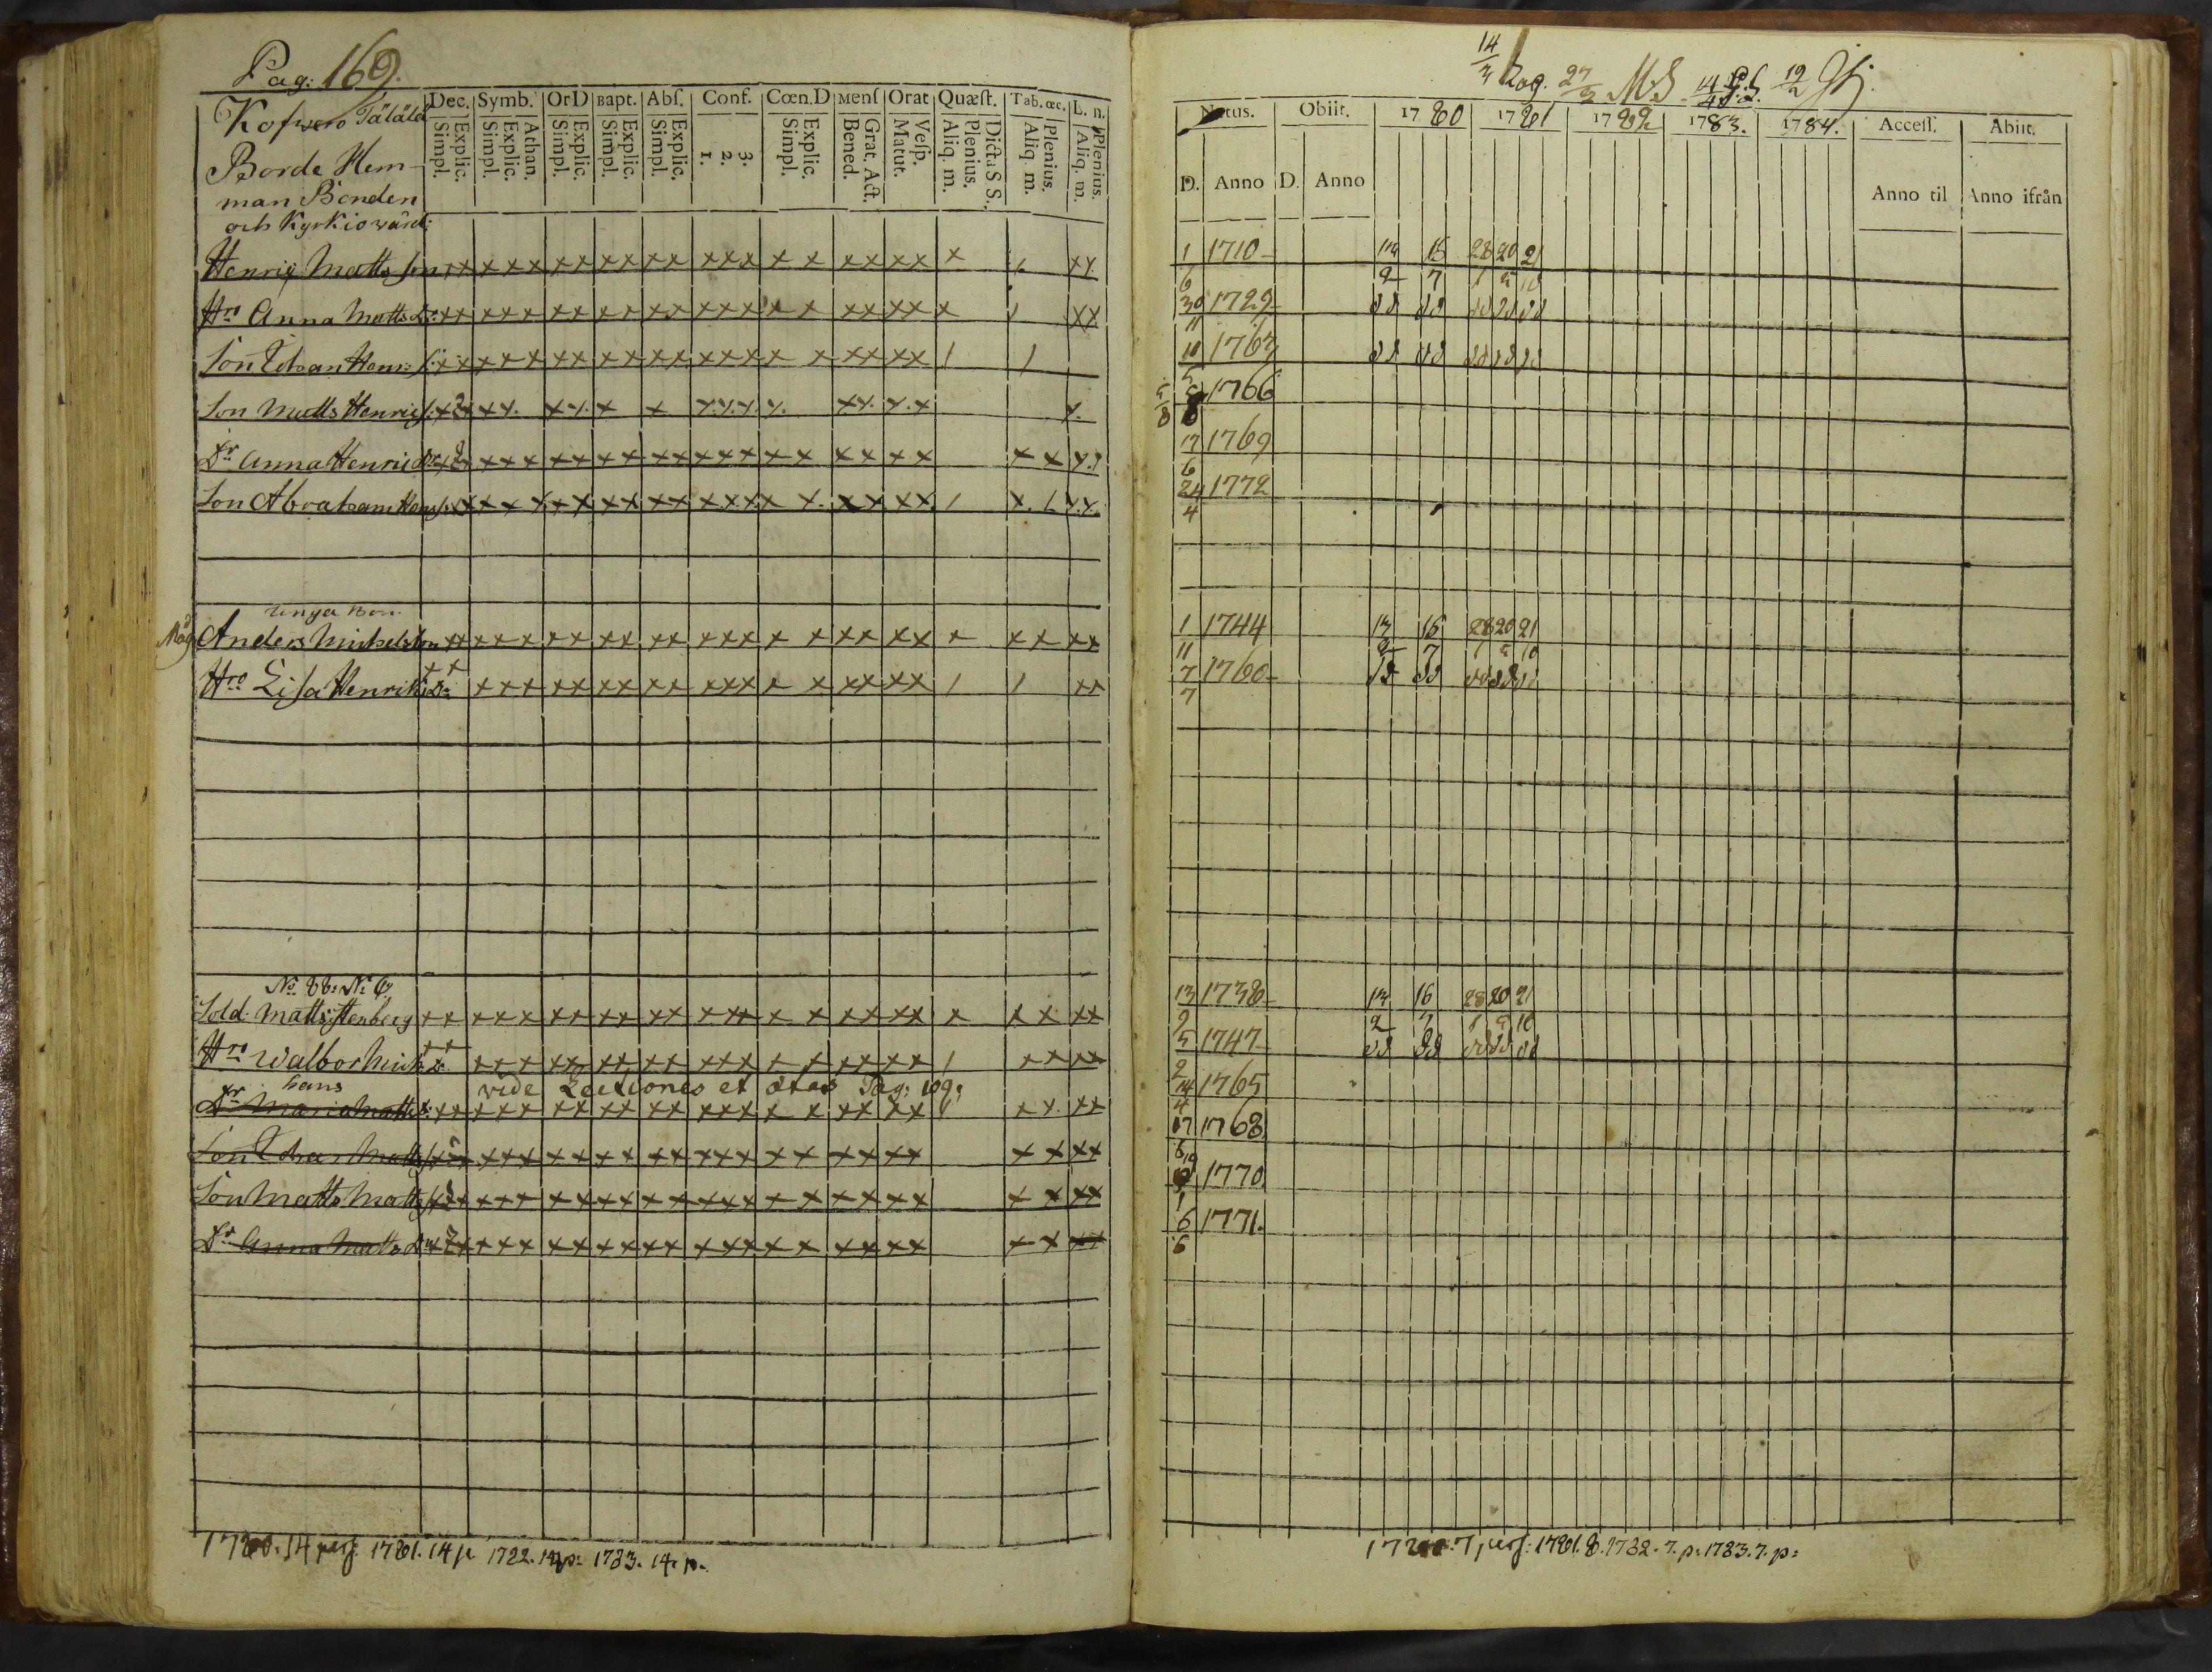 Pag: 169.
Kofwero Tälälä
Borde Hem-
man Bonden
och Kyrkiowärd:
Dec. Symb. OrD Bapt. Abſ. Conf. Cœn.D Menſ Orat Quæſt. Tab. œc. L. n.
Explic. Simpl. Athan. Explic. Simpl. Explic. Simpl. Explic. Simpl. Explic. Simpl. 3. 2. 1. Explic. Simpl. Grat. Act. Bened. Veſp. Matut. Dicta S S. Plenius. Aliq. m. Plenius. Aliq. m. Plenius. Aliq. m.
Henric Matts son
Hro Anna Matts Dr:
Son Johan Henr: s:
Son Matts Henrics:
Dr Anna Henrics Dr
Son Abraham Henr s:
unga Bon.
Måg Anders Michelsson
Hro Lisa Henriks Dr
No. 88: No 6
Sold. Matts Stenberg
Hro Walbor Mich: Dr
hans vide Lectiones et ætas Pag: 109:
Dr Maria Matts D:
Son Johan Matts s:
Son Matts Matts s:
Dr Anna Matts D
1780. 14 pers: 1781. 14 p 1782. 14 p: 1783. 14. p.
14/3 27/3 M.S 14/4 19/2
Natus. Obiit. 1780 1781 1782 1783. 1784. Acceſſ. Abiit.
D. Anno D. Anno Anno til Anno ifrån
1/6 1710 14/2 15/7 28/1 20/5 21/10
30/11 1729
10/5 1763
5/8 1766
17/6 1769
24/4 1772
1/11 1744 14/2 16/7 28/1 20/5 21/10
7/7 1760
13/9 1738 14/2 16/7 28/1 20/5 21/10
5/2 1747
14/4 1765
17/6 1768
1770
6/6 1771.
1780. 7 pers: 1781. 8. 1782. 7. p: 1783. 7. p: